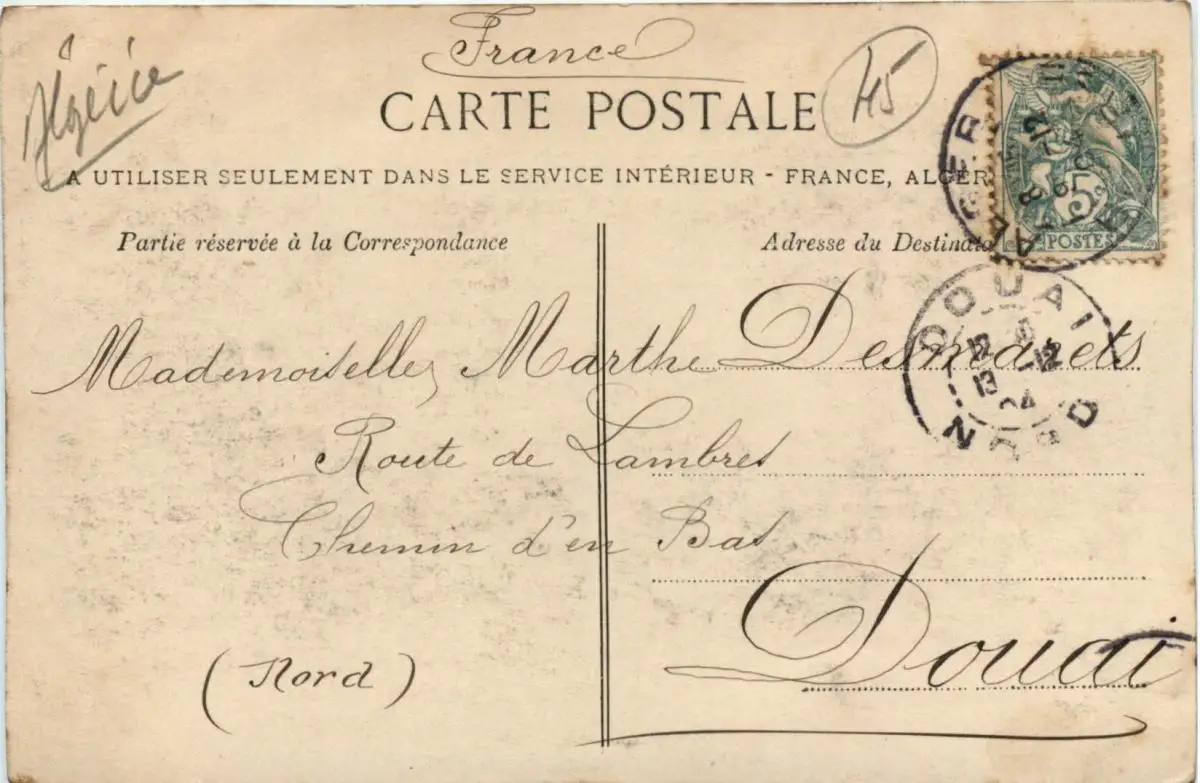 France
Algérie
CARTE POSTALE
45
A UTILISER SEULEMENT DANS LE SERVICE INTÉRIEUR - FRANCE, ALGER
Partie réservée à la Correspondance
Adresse du Destinata
5
POSTES
ALGER
8 -12
DOUAI
12
13 -12
04
NORD
Mademoiselle Marthe Desmarets
Route de Lambres
Chemin d'en Bas
Douai
(Nord)